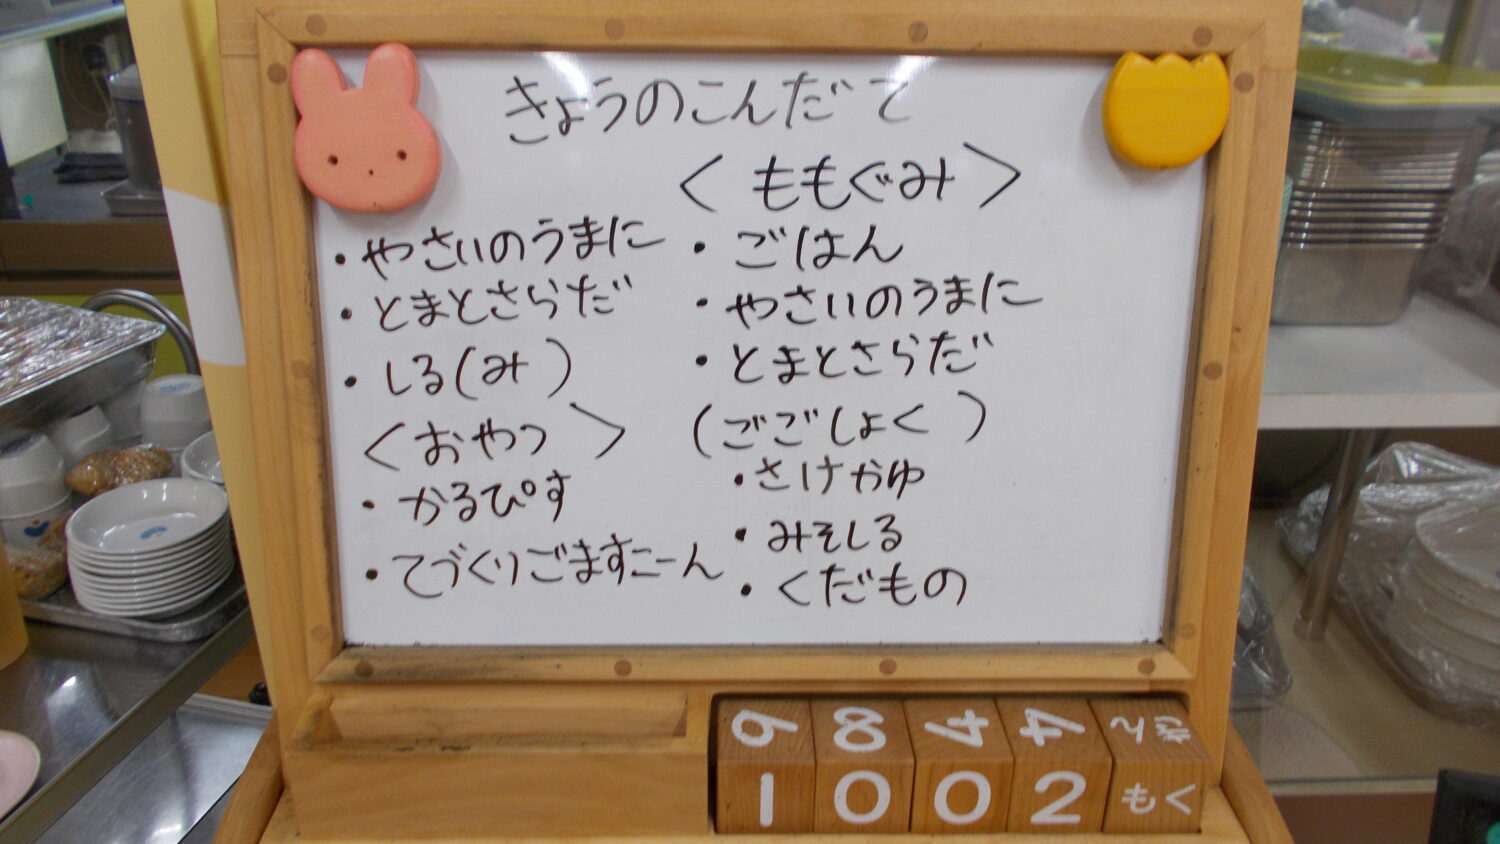 きょうのこんだて
・やさいのうまに
・とまとさらだ
・しる(み)
<おやつ>
・かるぴす
・てづくりごますこーん
<ももぐみ>
・ごはん
・やさいのうまに
・とまとさらだ
(ごごしょく)
・さけかゆ
・みそしる
・くだもの
9 8 4 4
1 0 0 2 もく